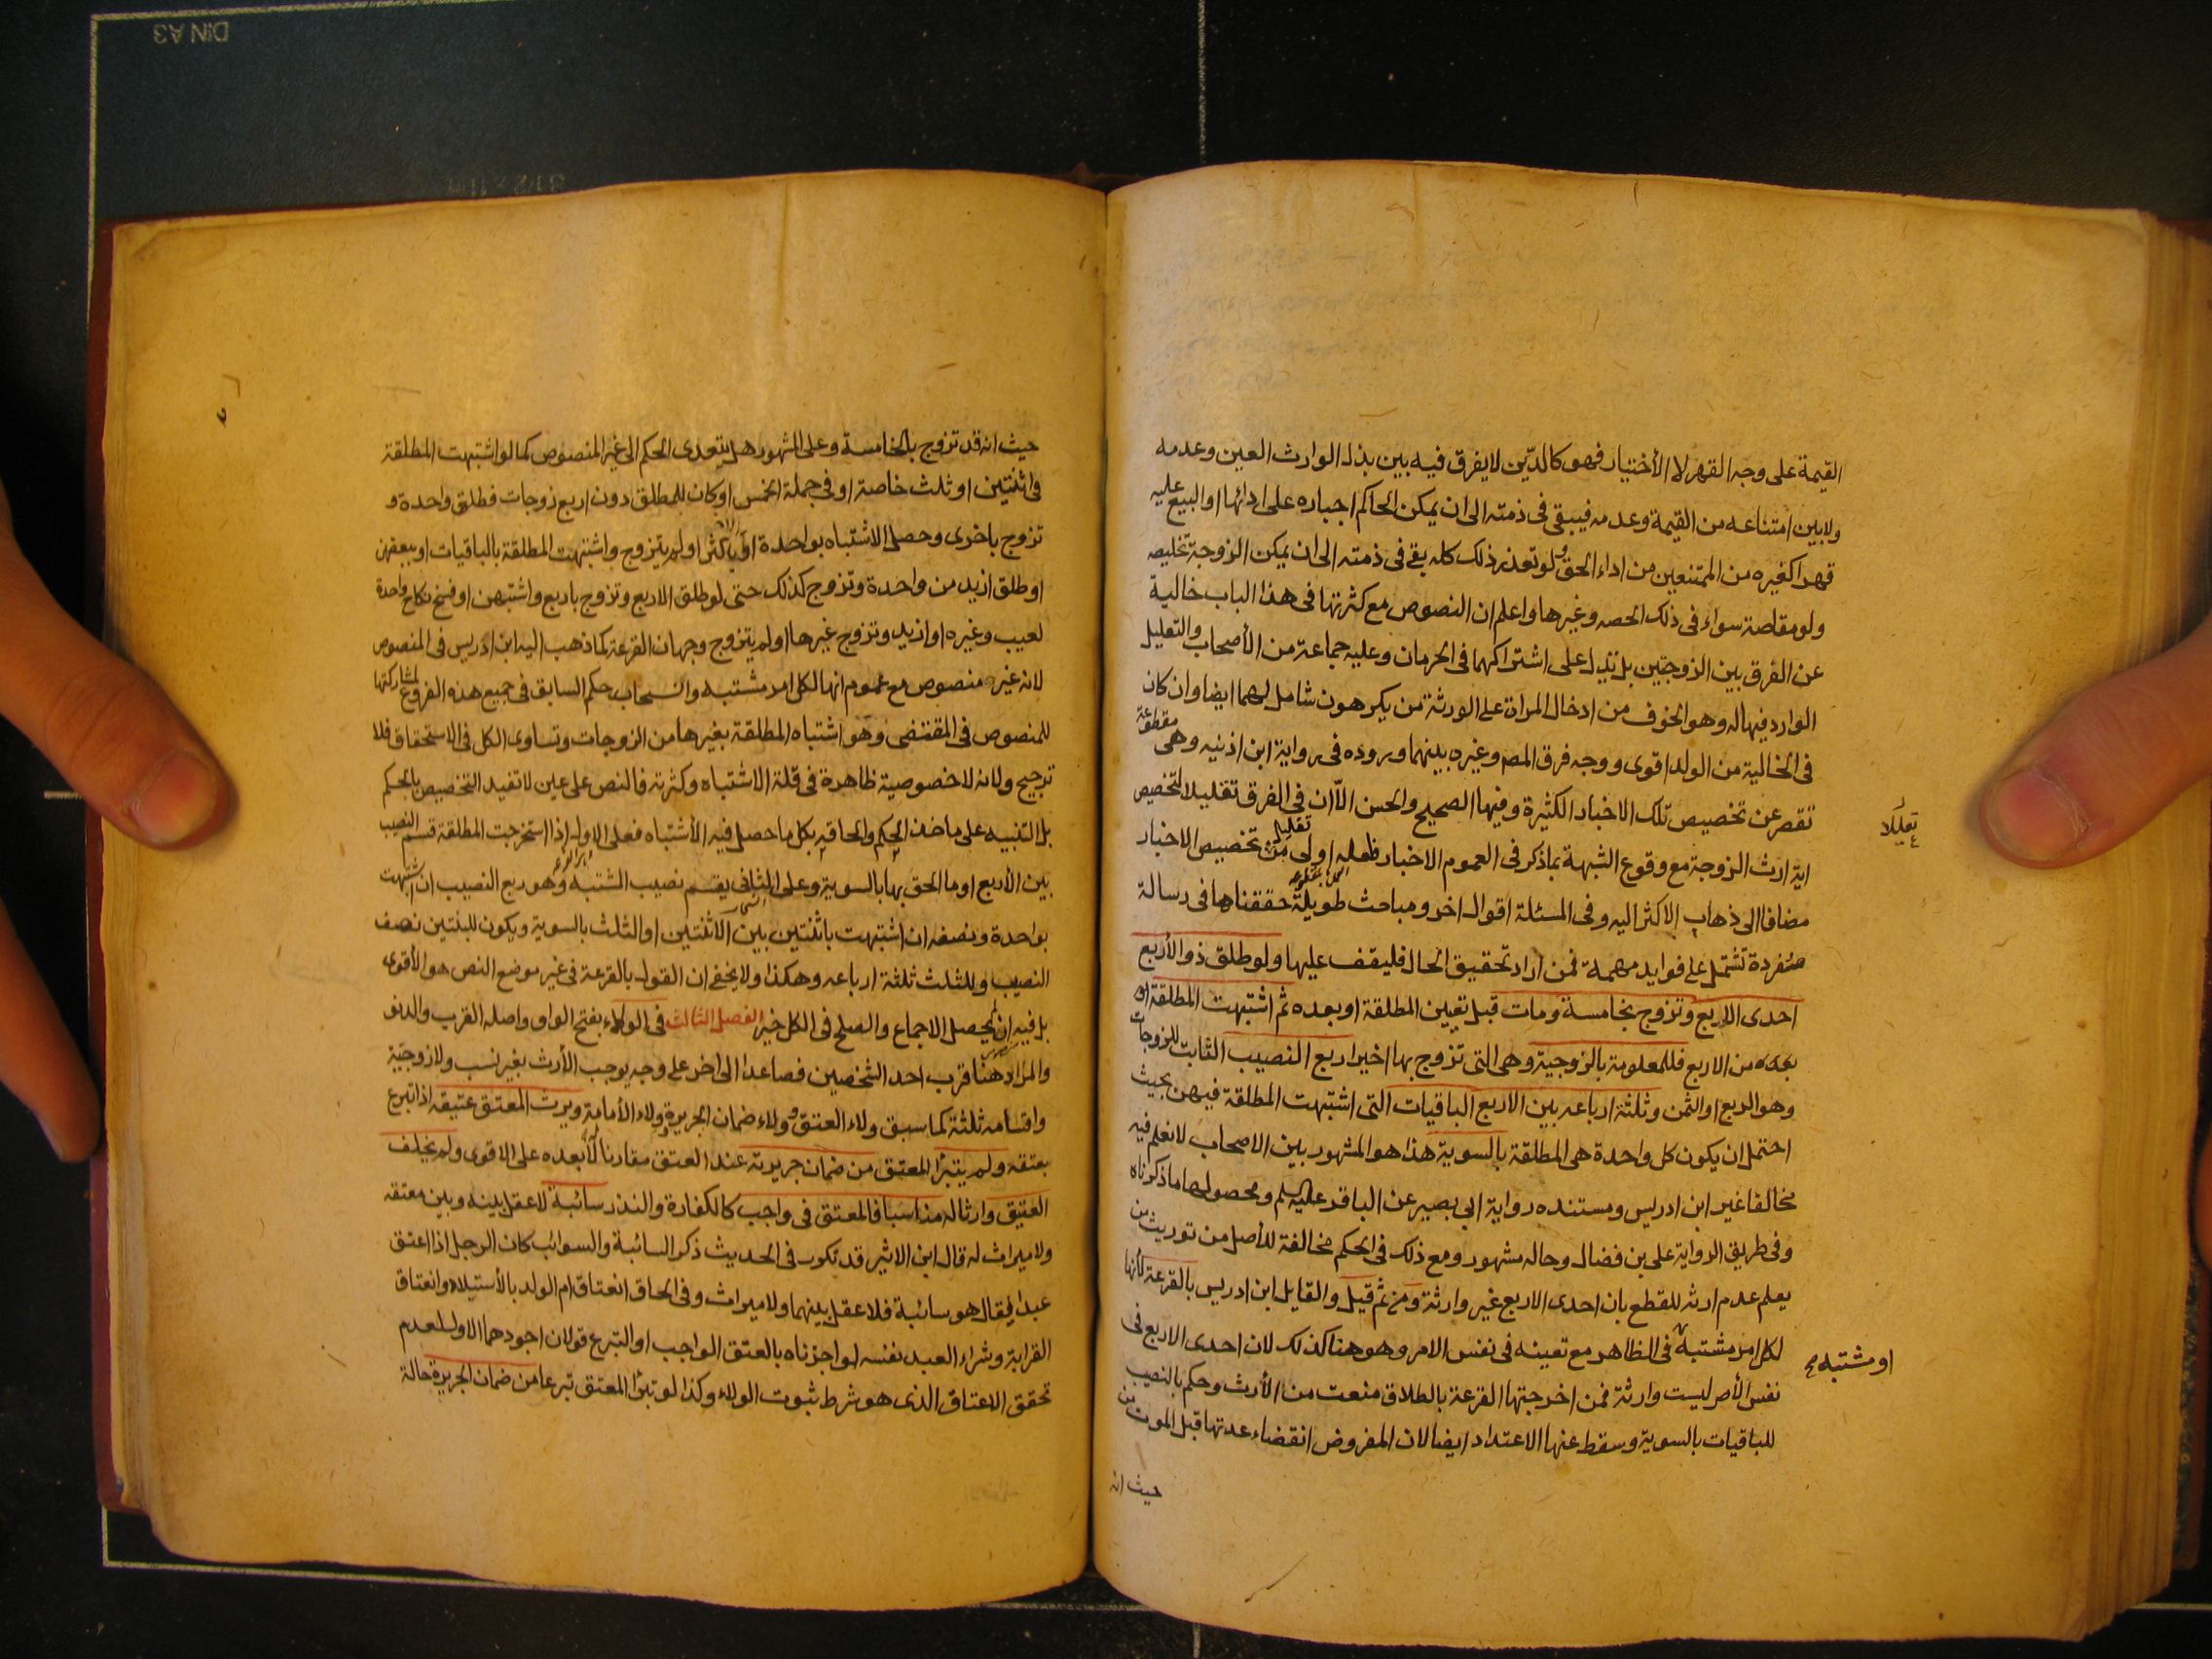 القيمة على وجه القهر لا الأختيار فهو كالدين لا يفرق فيه بين بذل الوارث العين وعدمه
ولا بين امتناعه من القيمة وعدمه فيبقى فى ذمته الى ان يمكن الحاكم اجباره على ادائها او البيع عليه
قهرا كغيره من الممتنعين من اداء الحق ولو تعذر ذلك كله بقى فى ذمته الى ان يمكن الزوجة تخليصه
ولو مقاصة سواء فى ذلك الحصه وغيرها واعلم ان النصوص مع كثرتها فى هذا الباب خالية
عن الفرق بين الزوجتين بل تدل على اشتراكهما فى الحرمان وعليه جماعة من الأصحاب والتعليل
الوارد فيها له وهو الخوف من ادخال المراة على الورثة من يكرهون شامل لهما ايضا وان كان
فى الخالية من الولد اقوى ووجه فرق المصـ وغيره بينهما وروده فى رواية ابن اذنيه وهى مقطوعة
تقصر عن تخصيص تلك الاخبار الكثيرة وفيها الصحيح والحسن الا ان فى الفرق تقليلا لتخصيص
تعليلا
اية ارث الزوجة مع وقوع الشبهة بما ذكر فى العموم الاخبار فلعله اولى من تقليل تخصيص الاخبار
مضافا الى ذهاب الاكثر اليه وفى المسئلة اقوال اخر ومباحث طويلة حققناها فى رسالة
منفردة تشتمل على فوايد مهمة فمن اراد تحقيق الحال فليقف عليها ولو طلق ذو الأربع
احدى الاربع وتزوج بخامسة ومات قبل تعيين المطلقة او بعده ثم اشتبهت المطلقة او
بعده من الاربع فللمعلومة بالزوجية وهى التى تزوج بها اخيرا ربع النصيب الثابت للزوجات
وهو الربع او الثمن وثلثة ارباعه بين الاربع الباقيات التى اشتبهت المطلقة فيهن بحيث
احتمل ان يكون كل واحدة هى المطلقة بالسوية هذا هو المشهور بين الاصحاب لا نعلم فيه
مخالفا غير ابن ادريس ومستنده رواية ابى بصير عن الباقر عليه السلم ومحصولها ما ذكرناه
وفى طريق الرواية على بن فضال وحاله مشهور ومع ذلك فى الحكم مخالفة للأصل من توريث من
يعلم عدم ارثه للقطع بان احدى الاربع غير وارثة ومن ثم قيل والقايل ابن ادريس بالقرعة لأنها
لكل امر مشتبه فى الظاهر مع تعينه فى نفس الامر وهو هنا كذلك لان احدى الاربع فى
او مشتبه صح
نفس الأمر ليست وارثة فمن اخرجتها القرعة بالطلاق منعت من الأرث وحكم بالنصيب
للباقيات بالسوية وسقط عنها الاعتداد ايضا لان المفروض انقضاء عدتها قبل الموت من
حيث انه
حيث انه قد تزوج بالخامسة وعلى المشهور هل يتعدى الحكم الى غير المنصوص كما لو اشتبهت المطلقة
فى اثنتين او ثلث خاصة او فى جملة الخمس او كان للمطلق دون اربع زوجات فطلق واحدة و
تزوج باخرى وحصل الاشتباه بواحدة او باكثر او لم يتزوج واشتبهت المطلقة بالباقيات او ببعضهن
او طلق ازيد من واحدة وتزوج كذلك حتى لو طلق الاربع وتزوج باربع واشتبهن او فسخ نكاح واحدة
لعيب وغيره او ازيد وتزوج غيرها او لم يتزوج وجهان القرعة كما ذهب اليه ابن ادريس فى المنصوص
لانه غير منصوص مع عموم انها لكل امر مشتبه وانسحاب حكم السابق فى جميع هذه الفروع لمشاركتها
للمنصوص فى المقتضى وهو اشتباه المطلقة بغيرها من الزوجات وتساوى الكل فى الاستحقاق فلا
ترجيح ولانه لا خصوصية ظاهرة فى قلة الاشتباه وكثرته فالنص على عين لا تفيد التخصيص بالحكم
بل التنبيه على ماخذ الحكم والحاقه بكل ما حصل فيه الأشتباه فعلى الاول اذا استخرجت المطلقة قسم النصيب
بين الأربع او ما الحق بها بالسوية وعلى الثانى يقسم نصيب المشتبه وهو ربع النصيب ان اشتبهت
بواحدة ونصفه ان اشتبهت باثنتين بين الاثنتين او الثلث بالسوية ويكون للبنتين نصف
النصيب وللثلث ثلثة ارباعه وهكذا ولا يخفى ان القول بالقرعة فى غير موضع النص هو الأقوى
بل فيه ان لم يحصل الاجماع والصلح فى الكل خير الفصل الثالث فى الولاء بفتح الواو واصله القرب والدنو
والمراد هنا قرب احد الشخصين فصاعدا الى اخر على وجه يوجب الأرث بغير نسب ولا زوجيّة
واقسامه ثلثة كما سبق ولاء العتق وولاء ضمان الجريرة وولاء الأمامة ويرث المعتق عتيقه اذا تبرع
بعتقه ولم يتبرا المعتق من ضمان جريرته عند العتق مقارنا لا بعده على الاقوى ولم يخلف
العتيق وارثا له مناسبا فالمعتق فى واجب كالكفارة والنذر سائبة لا عقل بينه وبين معتقه
ولا ميراث له قال ابن الاثير قد تكرر فى الحديث ذكر السائبة والسوائب كان الرجل اذا اعتق
عبدا فقال هو سائبة فلا عقل بينهما ولا ميراث وفى الحاق انعتاق ام الولد بالأستيلاد وانعتاق
القرابة وشراء العبد نفسه لو اجزناه بالعتق الواجب او التبرع قولان اجودهما الاول لعدم
تحقق الاعتاق الذى هو شرط ثبوت الولاء وكذا لو تبرّا المعتق تبرعا من ضمان الجريرة حالة